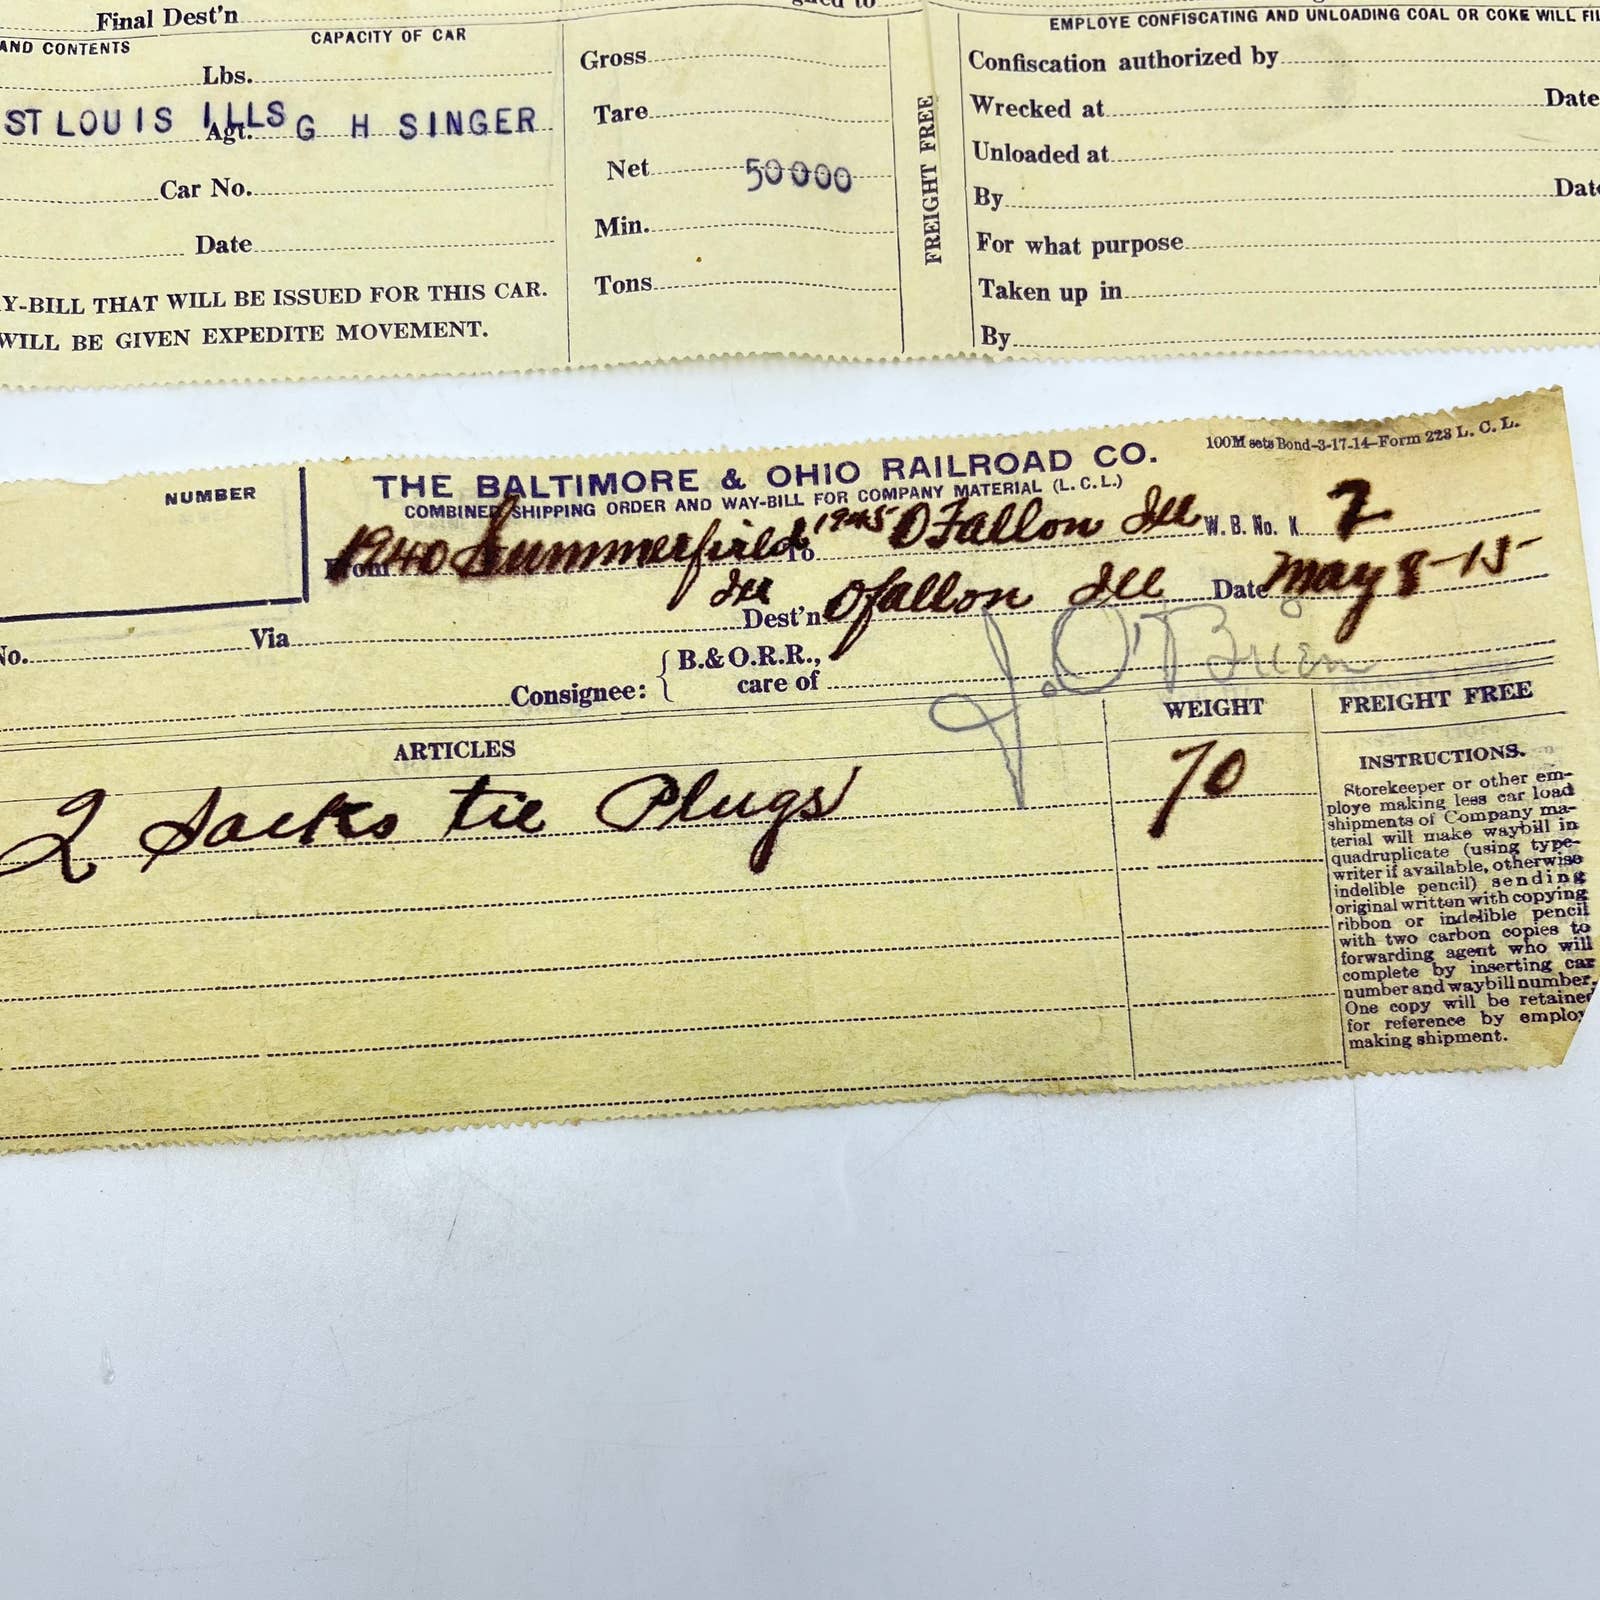 Final Dest'n
AND CONTENTS CAPACITY OF CAR
Lbs.
ST LOUIS ILLS Agt. G H SINGER
Car No.
Date
Y-BILL THAT WILL BE ISSUED FOR THIS CAR.
WILL BE GIVEN EXPEDITE MOVEMENT.
Gross
Tare
Net 50000
Min.
Tons
FREIGHT FREE
EMPLOYE CONFISCATING AND UNLOADING COAL OR COKE WILL FIL
Confiscation authorized by
Wrecked at Date
Unloaded at
By Date
For what purpose
Taken up in
By
100M sets Bond-3-17-14-Form 223 L. C. L.
NUMBER
THE BALTIMORE & OHIO RAILROAD CO.
COMBINED SHIPPING ORDER AND WAY-BILL FOR COMPANY MATERIAL (L.C.L.)
From 1940 Summerfield To 1945 OFallon Ill W. B. No. K 7
Ill Dest'n Ofallon Ill Date May 8-15-
No. Via
Consignee: B.&O.R.R., care of J. O'Brien
ARTICLES WEIGHT FREIGHT FREE
2 Sacks tie Plugs 70
INSTRUCTIONS.
Storekeeper or other em-
ploye making less car load
shipments of Company ma-
terial will make waybill in
quadruplicate (using type-
writer if available, otherwise
indelible pencil) sending
original written with copying
ribbon or indelible pencil
with two carbon copies to
forwarding agent who will
complete by inserting car
number and waybill number.
One copy will be retained
for reference by employ
making shipment.